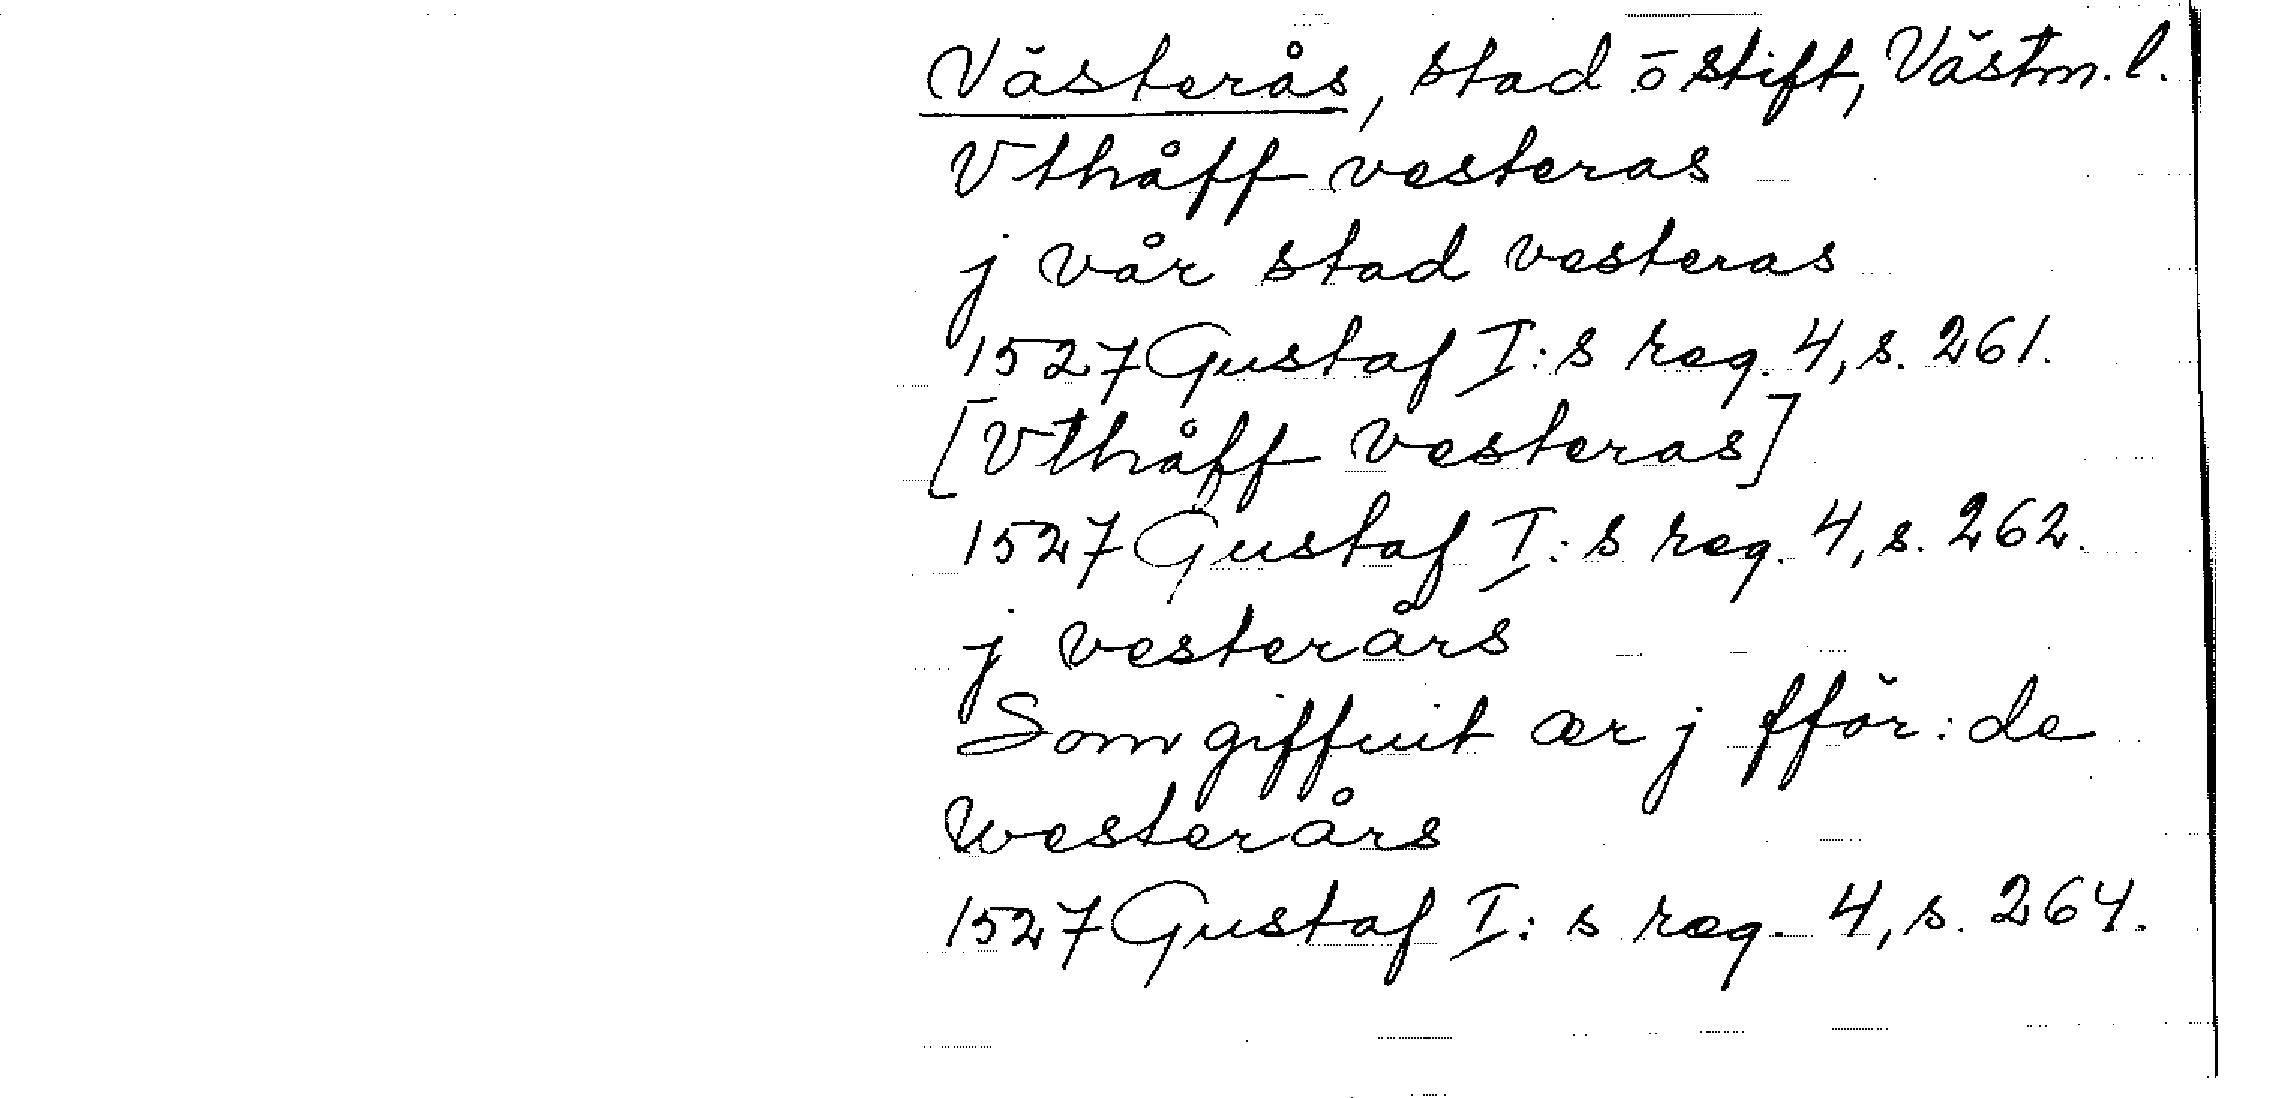 Västerås, stad o stift, Västm. l.
Vthåff vesteras
j vår stad vesteras
1527 Gustaf I:s reg. 4, s. 261.
[Vthåff vesteras]
1527 Gustaf I:s reg. 4, s. 262.
j vesterårs
Som giffuit ær j fför:de
Westerårs
1527 Gustaf I:s reg. 4, s. 264.